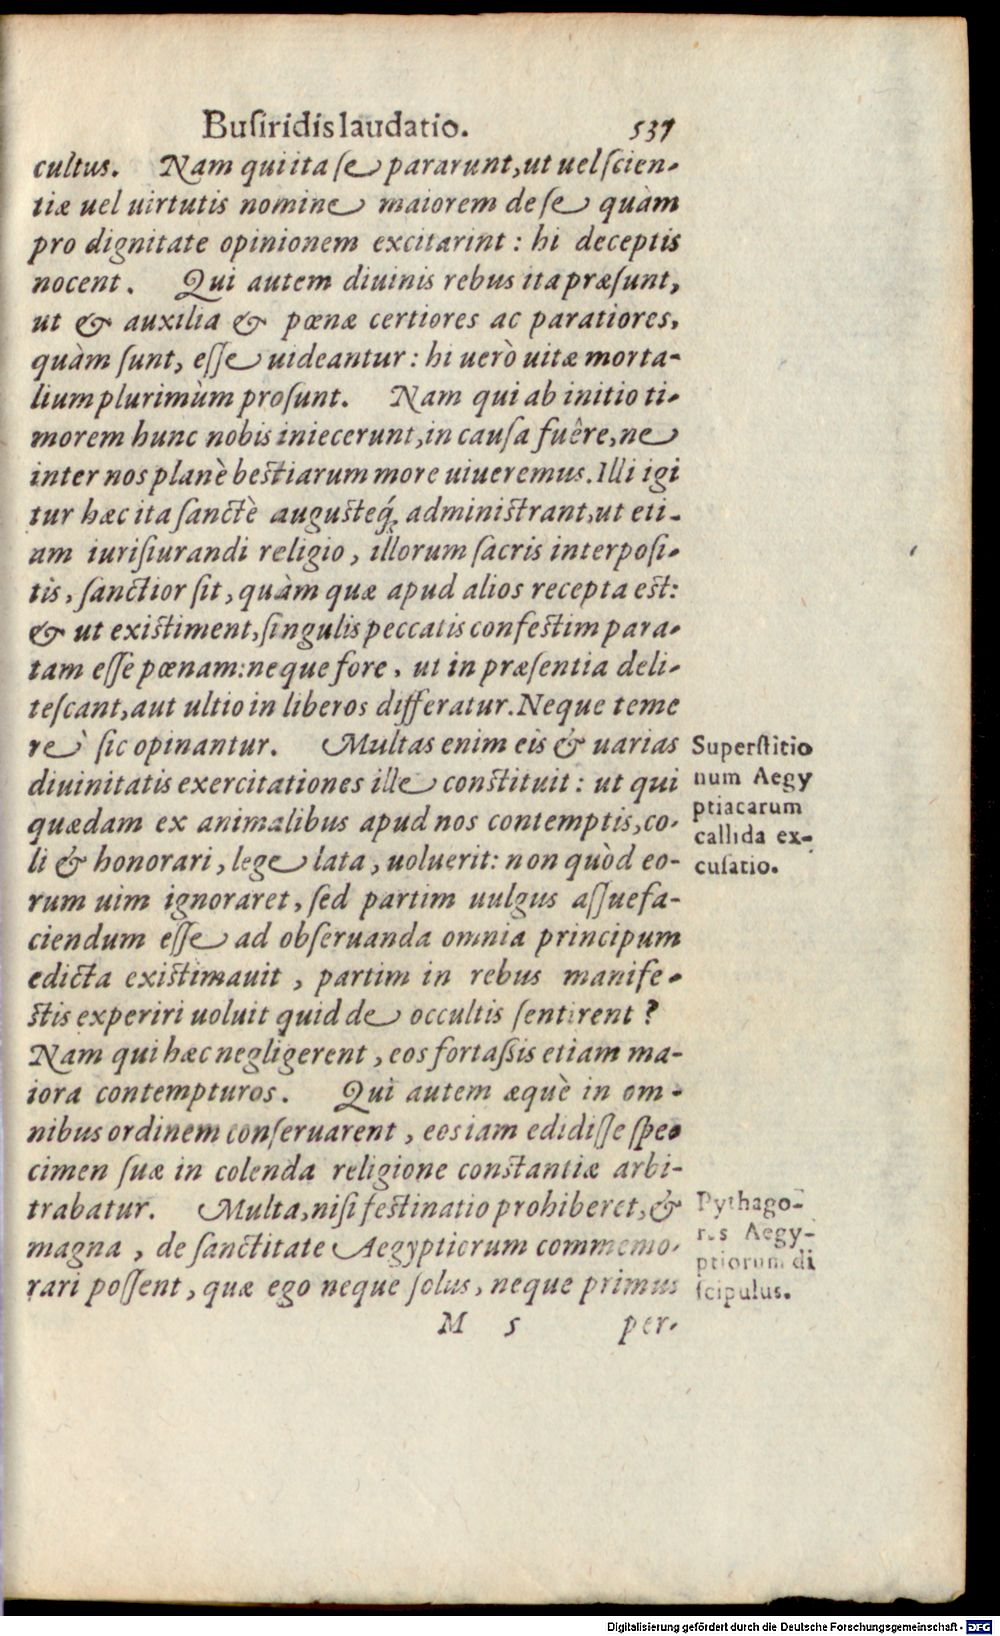 Buſiridis laudatio. 537
cultus. Nam qui ita ſe pararunt, ut uel ſcien-
tiæ uel uirtutis nomine maiorem de ſe quàm
pro dignitate opinionem excitarint: hi deceptis
nocent. Qui autem diuinis rebus ita præſunt,
ut & auxilia & pœnæ certiores ac paratiores,
quàm ſunt, eſſe uideantur: hi uerò uitæ morta-
lium plurimùm proſunt. Nam qui ab initio ti-
morem hunc nobis iniecerunt, in cauſa fuêre, ne
inter nos planè beſtiarum more uiueremus. Illi igi
tur hæc ita ſanctè auguſteq́; adminiſtrant, ut eti-
am iurisiurandi religio, illorum ſacris interpoſi-
tis, ſanctior ſit, quàm quæ apud alios recepta eſt:
& ut exiſtiment, ſingulis peccatis confeſtim para-
tam eſſe pœnam: neque fore, ut in præſentia deli-
teſcant, aut ultio in liberos differatur. Neque teme
rè ſic opinantur. Multas enim eis & uarias
diuinitatis exercitationes ille conſtituit: ut qui
quædam ex animalibus apud nos contemptis, co-
li & honorari, lege lata, uoluerit: non quòd eo-
rum uim ignoraret, ſed partim uulgus aſſuefa-
ciendum eſſe ad obſeruanda omnia principum
edicta exiſtimauit, partim in rebus manife-
ſtis experiri uoluit quid de occultis ſentirent?
Nam qui hæc negligerent, eos fortaſsis etiam ma-
iora contempturos. Qui autem æquè in om-
nibus ordinem conſeruarent, eos iam edidiſſe ſpe-
cimen ſuæ in colenda religione conſtantiæ arbi-
trabatur. Multa, niſi feſtinatio prohiberet, &
magna, de ſanctitate Aegyptiorum commemo-
rari poſſent, quæ ego neque ſolus, neque primus
M 5 per-
Superſtitio
num Aegy
ptiacarum
callida ex-
cuſatio.
Pythago-
ras Aegy-
ptiorum di
ſcipulus.
Digitalisierung gefördert durch die Deutsche Forschungsgemeinschaft - DFG